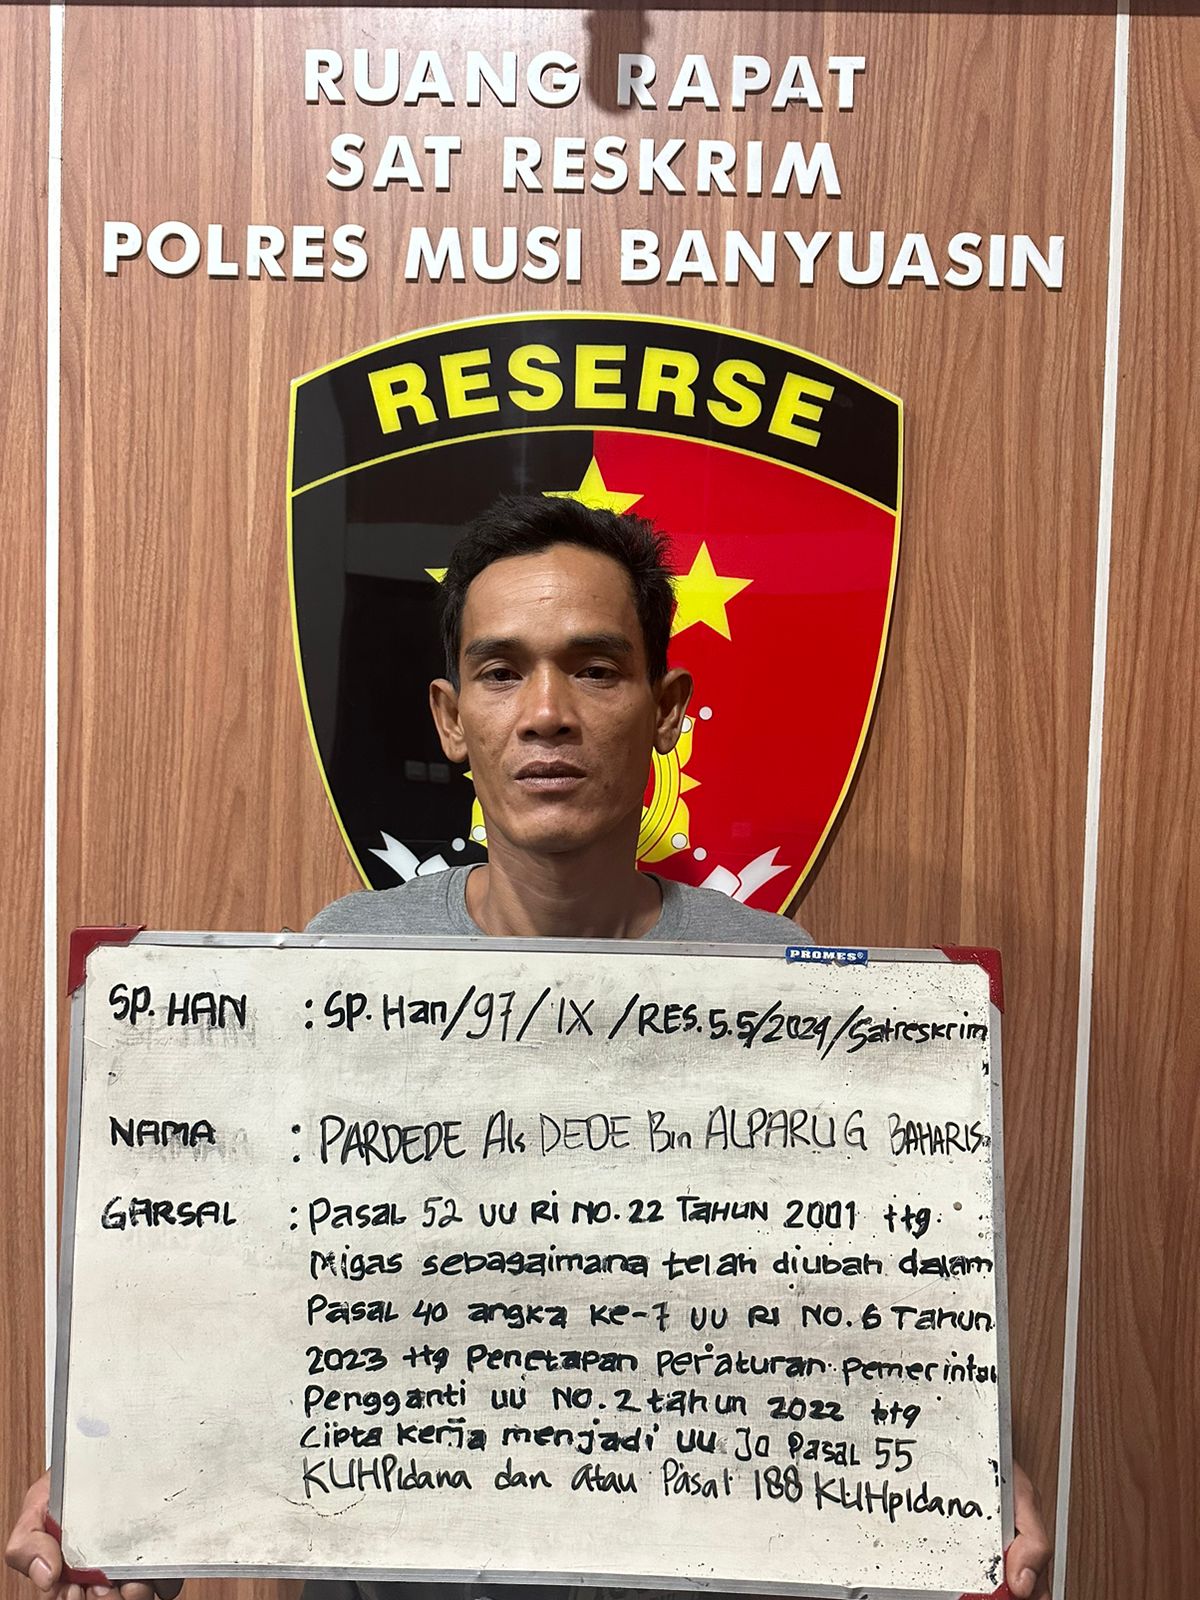 RUANG RAPAT
SAT RESKRIM
POLRES MUSI BANYUASIN
RESERSE
PROMES®
SP. HAN : SP. Han/97/IX/RES.5.5/2024/Satreskrim
NAMA : PARDEDE Als DEDE Bin ALPARUG BAHARIS
GARSAL : Pasal 52 UU RI NO. 22 TAHUN 2001 ttg.
Migas sebagaimana telah diubah dalam
Pasal 40 angka ke-7 UU RI NO. 6 Tahun
2023 ttg Penetapan Peraturan Pemerinta
Pengganti UU NO. 2 tahun 2022 ttg
Cipta Kerja menjadi UU Jo Pasal 55
KUHPidana dan atau Pasal 188 KUHpidana.